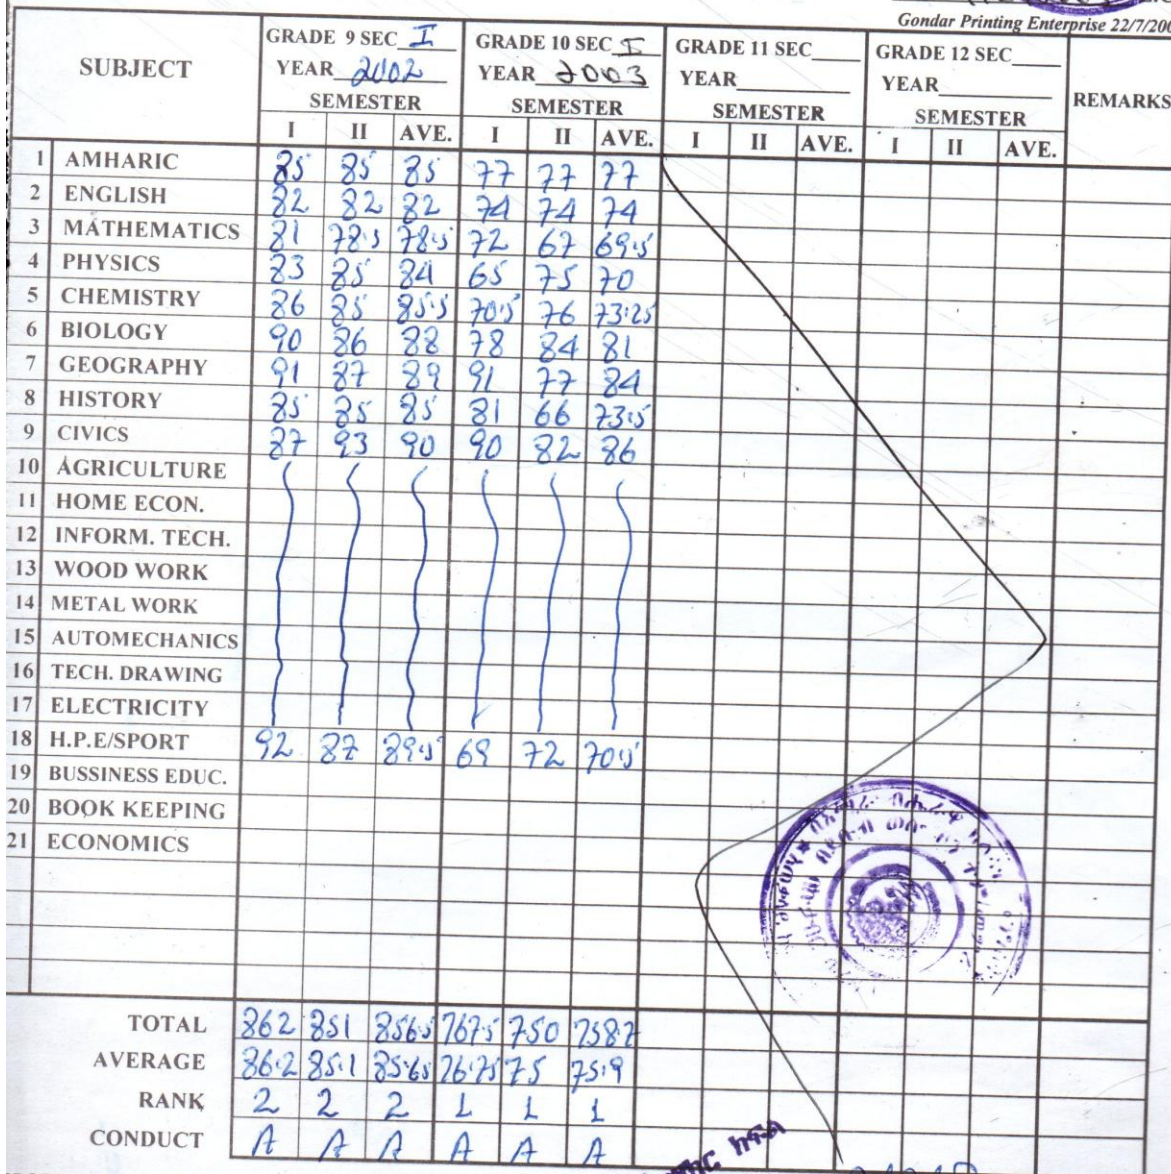 Gondar Printing Enterprise 22/7/200
SUBJECT GRADE 9 SEC I GRADE 10 SEC I GRADE 11 SEC GRADE 12 SEC REMARKS
YEAR 2002 YEAR 2003 YEAR YEAR
SEMESTER SEMESTER SEMESTER SEMESTER
I II AVE. I II AVE. I II AVE. I II AVE.
1 AMHARIC 85 85 85 77 77 77
2 ENGLISH 82 82 82 74 74 74
3 MATHEMATICS 81 78.5 78.5 72 67 69.5
4 PHYSICS 83 85 84 65 75 70
5 CHEMISTRY 86 85 85.5 70.5 76 73.25
6 BIOLOGY 90 86 88 78 84 81
7 GEOGRAPHY 91 87 89 91 77 84
8 HISTORY 85 85 85 81 66 73.5
9 CIVICS 87 93 90 90 82 86
10 AGRICULTURE
11 HOME ECON.
12 INFORM. TECH.
13 WOOD WORK
14 METAL WORK
15 AUTOMECHANICS
16 TECH. DRAWING
17 ELECTRICITY
18 H.P.E/SPORT 92 87 89.5 69 72 70.5
19 BUSSINESS EDUC.
20 BOOK KEEPING
21 ECONOMICS
TOTAL 862 851 856.5 767.5 750 758.7
AVERAGE 86.2 85.1 85.65 76.75 75 75.9
RANK 2 2 2 1 1 1
CONDUCT A A A A A A